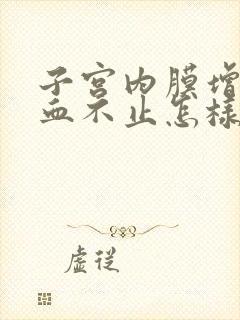 子宫内膜增
血不止怎样
虚従